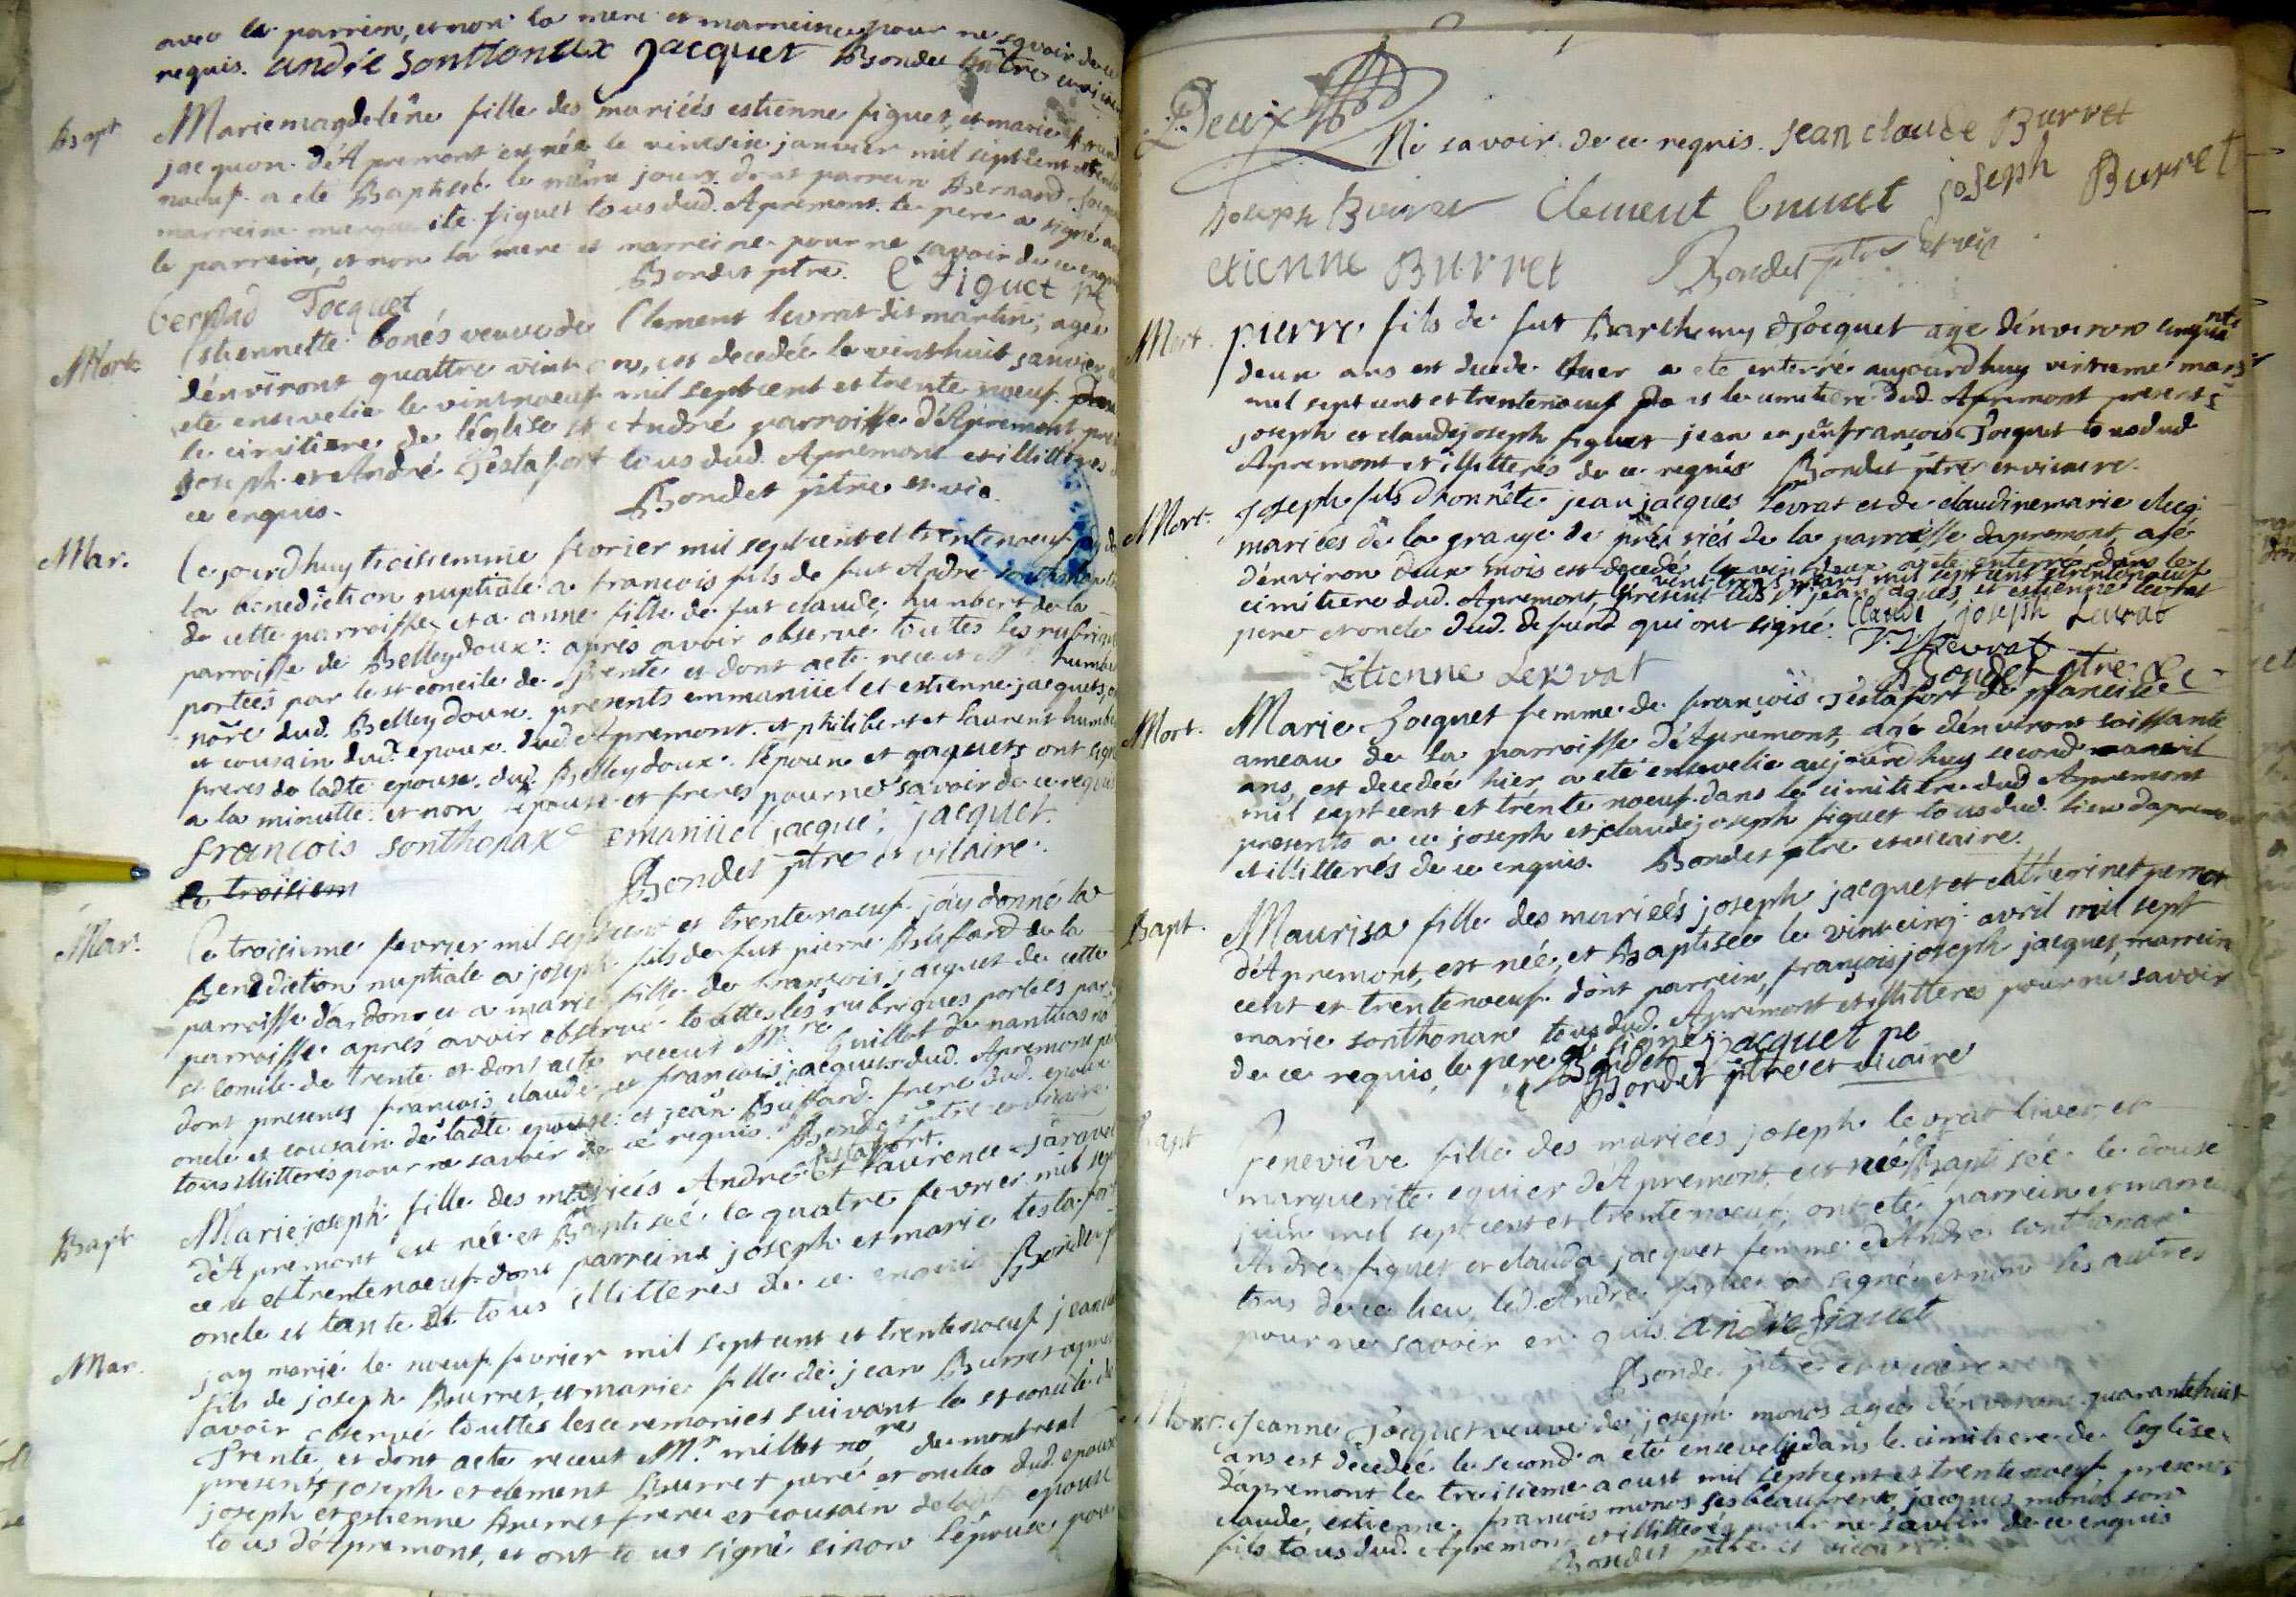 avec le parrein, et non la mere et marreine pour ne sçavoir de ce
requis. andré sonthonax Jacquet Bondet ptre
Bapt Marie magdelêne fille des mariéés estienne figuet, et marie
jacquon d'Apremont est née le vint six janvier mil sept cent et trente
noeuf a eté Baptisée le même jour dont parrein Bernard
marreine marguerite figuet tous dud. Apremont le pere a signé
le parrein, et non la mere et marreine pour ne savoir de ce enquis
Bondet ptre. E figuet pe
bernad Jocquet
Mort. Estiennette bonés veuve de Clement levrat dit martin, agée
d'environt quattre vint an, est decedée le vint huit janvier a
eté ensevelie le vint noeuf mil sept cent et trente noeuf dans
le cimitiere de l'église st André parroisse d'Apremont
joseph et André Testafort tous dud. Apremont et illitterés
ce enquis. Bondet ptre et vic.
Mar. Ce jourdhuy troisiemme fevrier mil sept cent et trente noeuf jay
la benediction nuptiale a francois fils de fut André sonthonax
de cette parroisse, et a anne fille de fut claude humbert de la
parroisse de Belleydoux: apres avoir observé touttes les rubriques
portées par le st concile de Trente et dont acte recut Mr humbert
nore dud. Belleydoux. presents emmanüel et estienne jacquets,
et cousain dud. epoux. dud. Apremont. et philibert et laurent humbert
freres de ladte epouse, dud. Belleydoux. l'epoux et jaquets ont signé
a la minutte: et non l'epouse et freres pour ne savoir de ce requis
françois sonthonax emanüel jacque; jacquet.
Bondet ptre et vicaire.
le troisiem
Mar. Ce troisieme fevrier mil sept cent et trente noeuf jáy donné la
Benediction nuptiale a joseph fils de fut pierre Buffard de la
parroisse dardon et a marie fille de françois jacquet de cette
parroisse aprés avoir observé touttes les rubriques portées par le
st concile de trente et dont acte receut Mre Guillot de nantuas no
dont presents francois, claude, et francois jacquets dud. Apremont
oncle et cousain de ladte epouse: et jean Buffard frere dud. epoux
tous illitterés pour ne savoir de ce requis. Bondet ptre et vicaire
Bapt Marie joseph fille des mariéés André testafort et laurence
d'Apremont est née et Baptiseé le quatre fevrier mil sept
cent et trente noeuf dont parreins joseph et marie testafort
oncle et tante et tous illitteres de ce enquis Bondet p
Mar. jay marié le noeuf fevrier mil sept cent et trente noeuf jean
fils de joseph Burret, et marie fille de jean Burret apres
avoir observé touttes les ceremonies suivant le st concile de
Trente, et dont acte receut Mr. millet nores de montreal
presents joseph et clement Burret pere et oncles dud. epoux
joseph et estienne Burret frere et cousain de ladte epouse
tous d'Apremont, et ont tous signé sinon l'épouse pour
Deux
Ne savoir de ce requis. jean claude Burret
joseph Burret Clement burret joseph Burret
etienne Burret Bondet ptre et vic
Mort. pierre fils de fut Barthemy Jocquet age dénviron cinquante
deux ans est decede hier a eté enterré aujourdhuy vintieme mars
mil sept cent et trente noeuf dans le cimitiere dud. Apremont presents
joseph et claude joseph figuet jean et jean françois Jocquet tous dud
Apremont et illitterés de ce requis Bondet ptre et vicaire.
Mort. Joseph fils d'honnête jean jacques levrat et de claudine marie
mariées de la grange de prés riés de la parroisse dapremont, agé
d'environ deux mois est decedé le vint deux a eté enterré dans le
cimitiere dud. Apremont, le vint trois mars mil sept cent et trente noeuf
present jean jaques, et estienne levrat
pere et oncle dud. defunt qui ont signé. Claude joseph Levrat
J. J. Levrat
Etienne Levrat Bondet ptre &c
Mort. Marie Jocquet femme de françois Testafort de
ameau de la parroisse d'Apremont, agé d'environ soissante
ans, est decedée hier a eté ensevelie aujourdhuy second avril
mil sept cent et trente noeuf dans le cimitiere dud Apremont
presents a ce joseph et claude joseph figuet tous dud. lieu dapremont
et illitterés de ce enquis. Bondet ptre et vicaire.
Bapt. Maurisa fille des mariéés joseph jacquet et catherine perrot
d'Apremont, est née, et Baptisée le vint cinq avril mil sept
cent et trente noeuf. dont parrein, françois joseph jacquet, marreine
marie sonthonax tous dud. Apremont et illitteres pour ne savoir
de ce requis, le pere a signé jacquet pe
Bondet ptre et vicaire
Bapt Geneviêve fille des mariéés joseph levrat livet, et
margueritte eguier d'Apremont, est née et Baptisée le douse
juin mil sept cent et trente noeuf, ont eté parrein et marreine
Andre figuet et clauda jacquet femme d'Andre sonthonax
tous de ce lieu, led. André figuet a signé et non les autres
pour ne savoir en quis. andre figuet
Bondet ptre et vicaire
Mort. Jeanne Jocquet veuve de joseph monos agée dénviron quarante huit
ans est decedéé le second a eté ensevelie dans le cimitiere de l'église
dapremont le troisieme aoust mil sept cent et trente noeuf presents
claude, estienne, francois monos ses beaufreres, jacques monos son
fils tous dud. Apremont et illitterés pour ne savoir de ce enquis
Bondet ptre et vicaire.